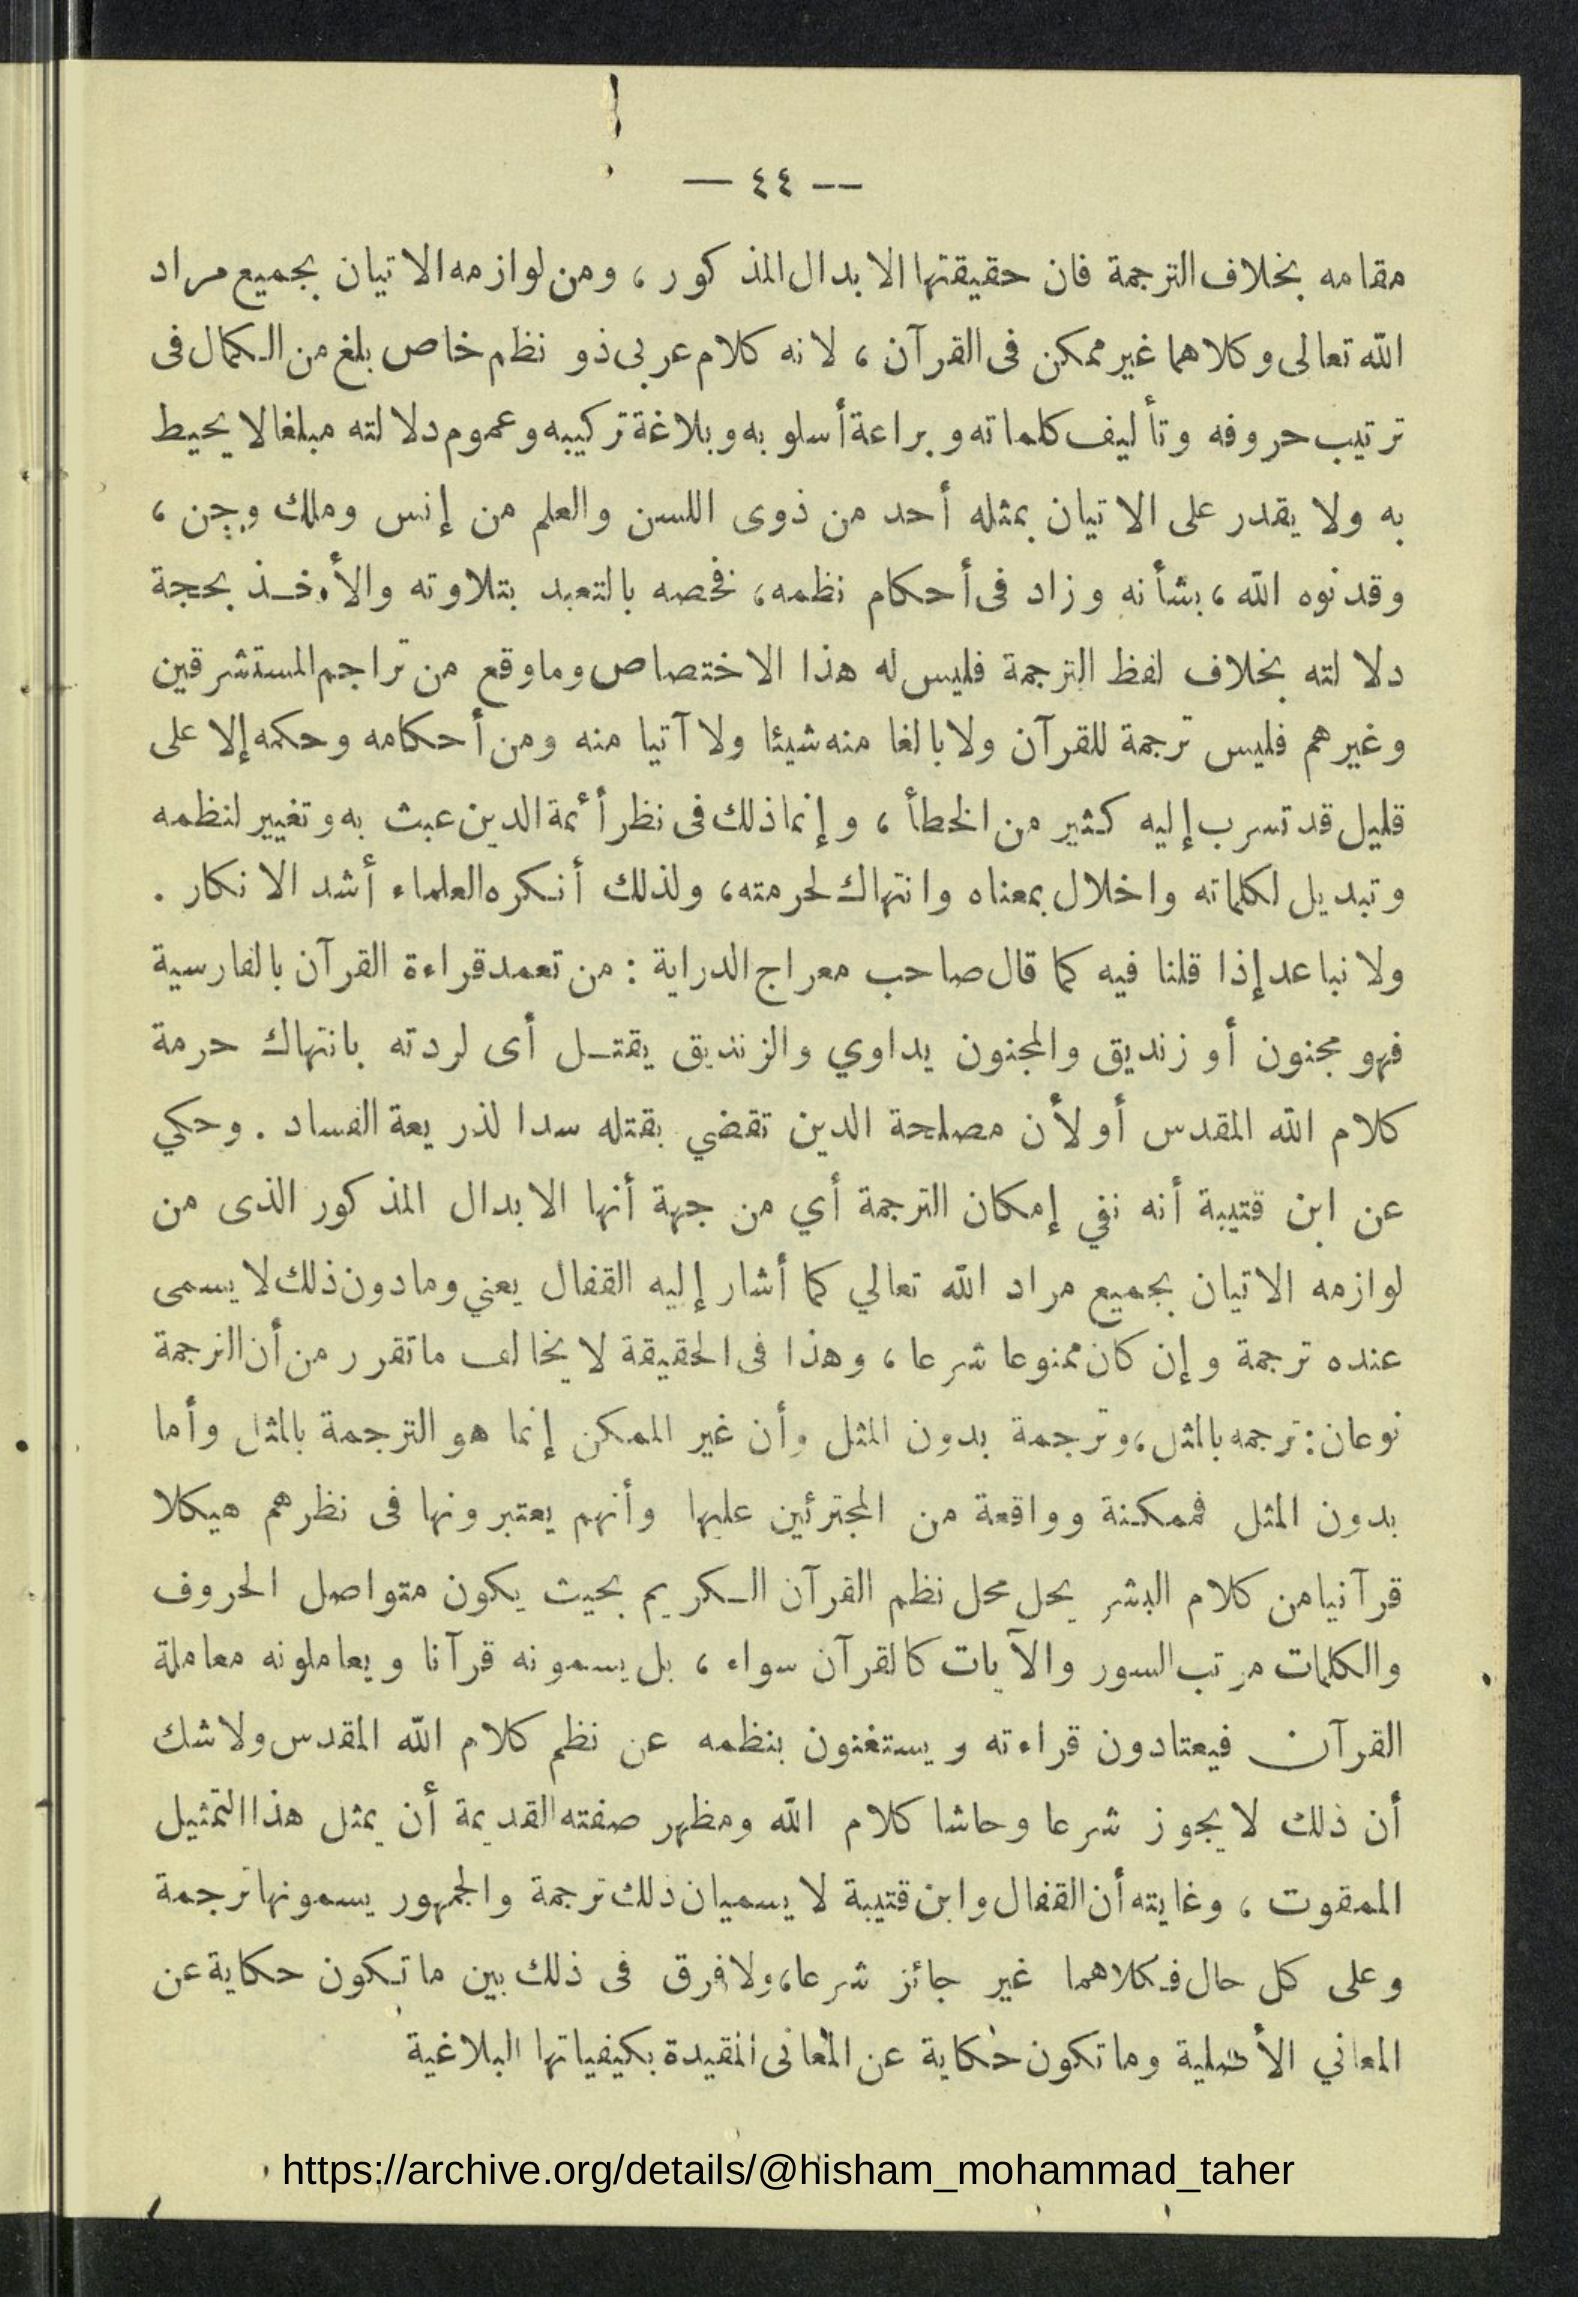 — ٤٤ —
مقامه بخلاف الترجمة فان حقيقتها الابدال المذكور ، ومن لوازمه الاتيان بجميع مراد
الله تعالى وكلاهما غير ممكن فى القرآن ، لانه كلام عربى ذو نظم خاص بلغ من الكمال فى
ترتيب حروفه وتأليف كلماته وبراعة أسلوبه وبلاغة تركيبه وعموم دلالته مبلغا لا يحيط
به ولا يقدر على الاتيان بمثله أحد من ذوى اللسن والعلم من إنس وملك وجن ،
وقد نوه الله ، بشأنه وزاد فى أحكام نظمه ، فخصه بالتعبد بتلاوته والأخذ بحجة
دلالته بخلاف لفظ الترجمة فليس له هذا الاختصاص وما وقع من تراجم المستشرقين
وغيرهم فليس ترجمة للقرآن ولا بالغا منه شيئا ولا آتيا منه ومن أحكامه وحكمه إلا على
قليل قد تسرب إليه كثير من الخطأ ، وإنما ذلك فى نظر أئمة الدين عبث به وتغيير لنظمه
وتبديل لكلماته واخلال بمعناه وانتهاك لحرمته ، ولذلك أنكره العلماء أشد الانكار .
ولا نباعد إذا قلنا فيه كما قال صاحب معراج الدراية : من تعمد قراءة القرآن بالفارسية
فهو مجنون أو زنديق والمجنون يداوي والزنديق يقتل أى لردته بانتهاك حرمة
كلام الله المقدس أو لأن مصلحة الدين تقضي بقتله سدا لذريعة الفساد . وحكي
عن ابن قتيبة أنه نفي إمكان الترجمة أي من جهة أنها الابدال المذكور الذى من
لوازمه الاتيان بجميع مراد الله تعالي كما أشار إليه القفال يعني وما دون ذلك لا يسمى
عنده ترجمة وإن كان ممنوعا شرعا ، وهذا فى الحقيقة لا يخالف ما تقرر من أن الترجمة
نوعان : ترجمه بالمثل ، وترجمة بدون المثل وأن غير الممكن إنما هو الترجمة بالمثل وأما
بدون المثل فممكنة وواقعة من المجترئين عليها وأنهم يعتبرونها فى نظرهم هيكلا
قرآنيا من كلام البشر يحل محل نظم القرآن الكريم بحيث يكون متواصل الحروف
والكلمات مرتب السور والآيات كالقرآن سواء ، بل يسمونه قرآنا ويعاملونه معاملة
القرآن فيعتادون قراءته ويستغنون بنظمه عن نظم كلام الله المقدس ولا شك
أن ذلك لا يجوز شرعا وحاشا كلام الله ومظهر صفته القديمة أن يمثل هذا التمثيل
الممقوت ، وغايته أن القفال وابن قتيبة لا يسميان ذلك ترجمة والجمهور يسمونها ترجمة
وعلى كل حال فكلاهما غير جائز شرعا ، ولا فرق فى ذلك بين ما تكون حكاية عن
المعاني الأصلية وما تكون حكاية عن المعانى المقيدة بكيفياتها البلاغية
https://archive.org/details/@hisham_mohammad_taher